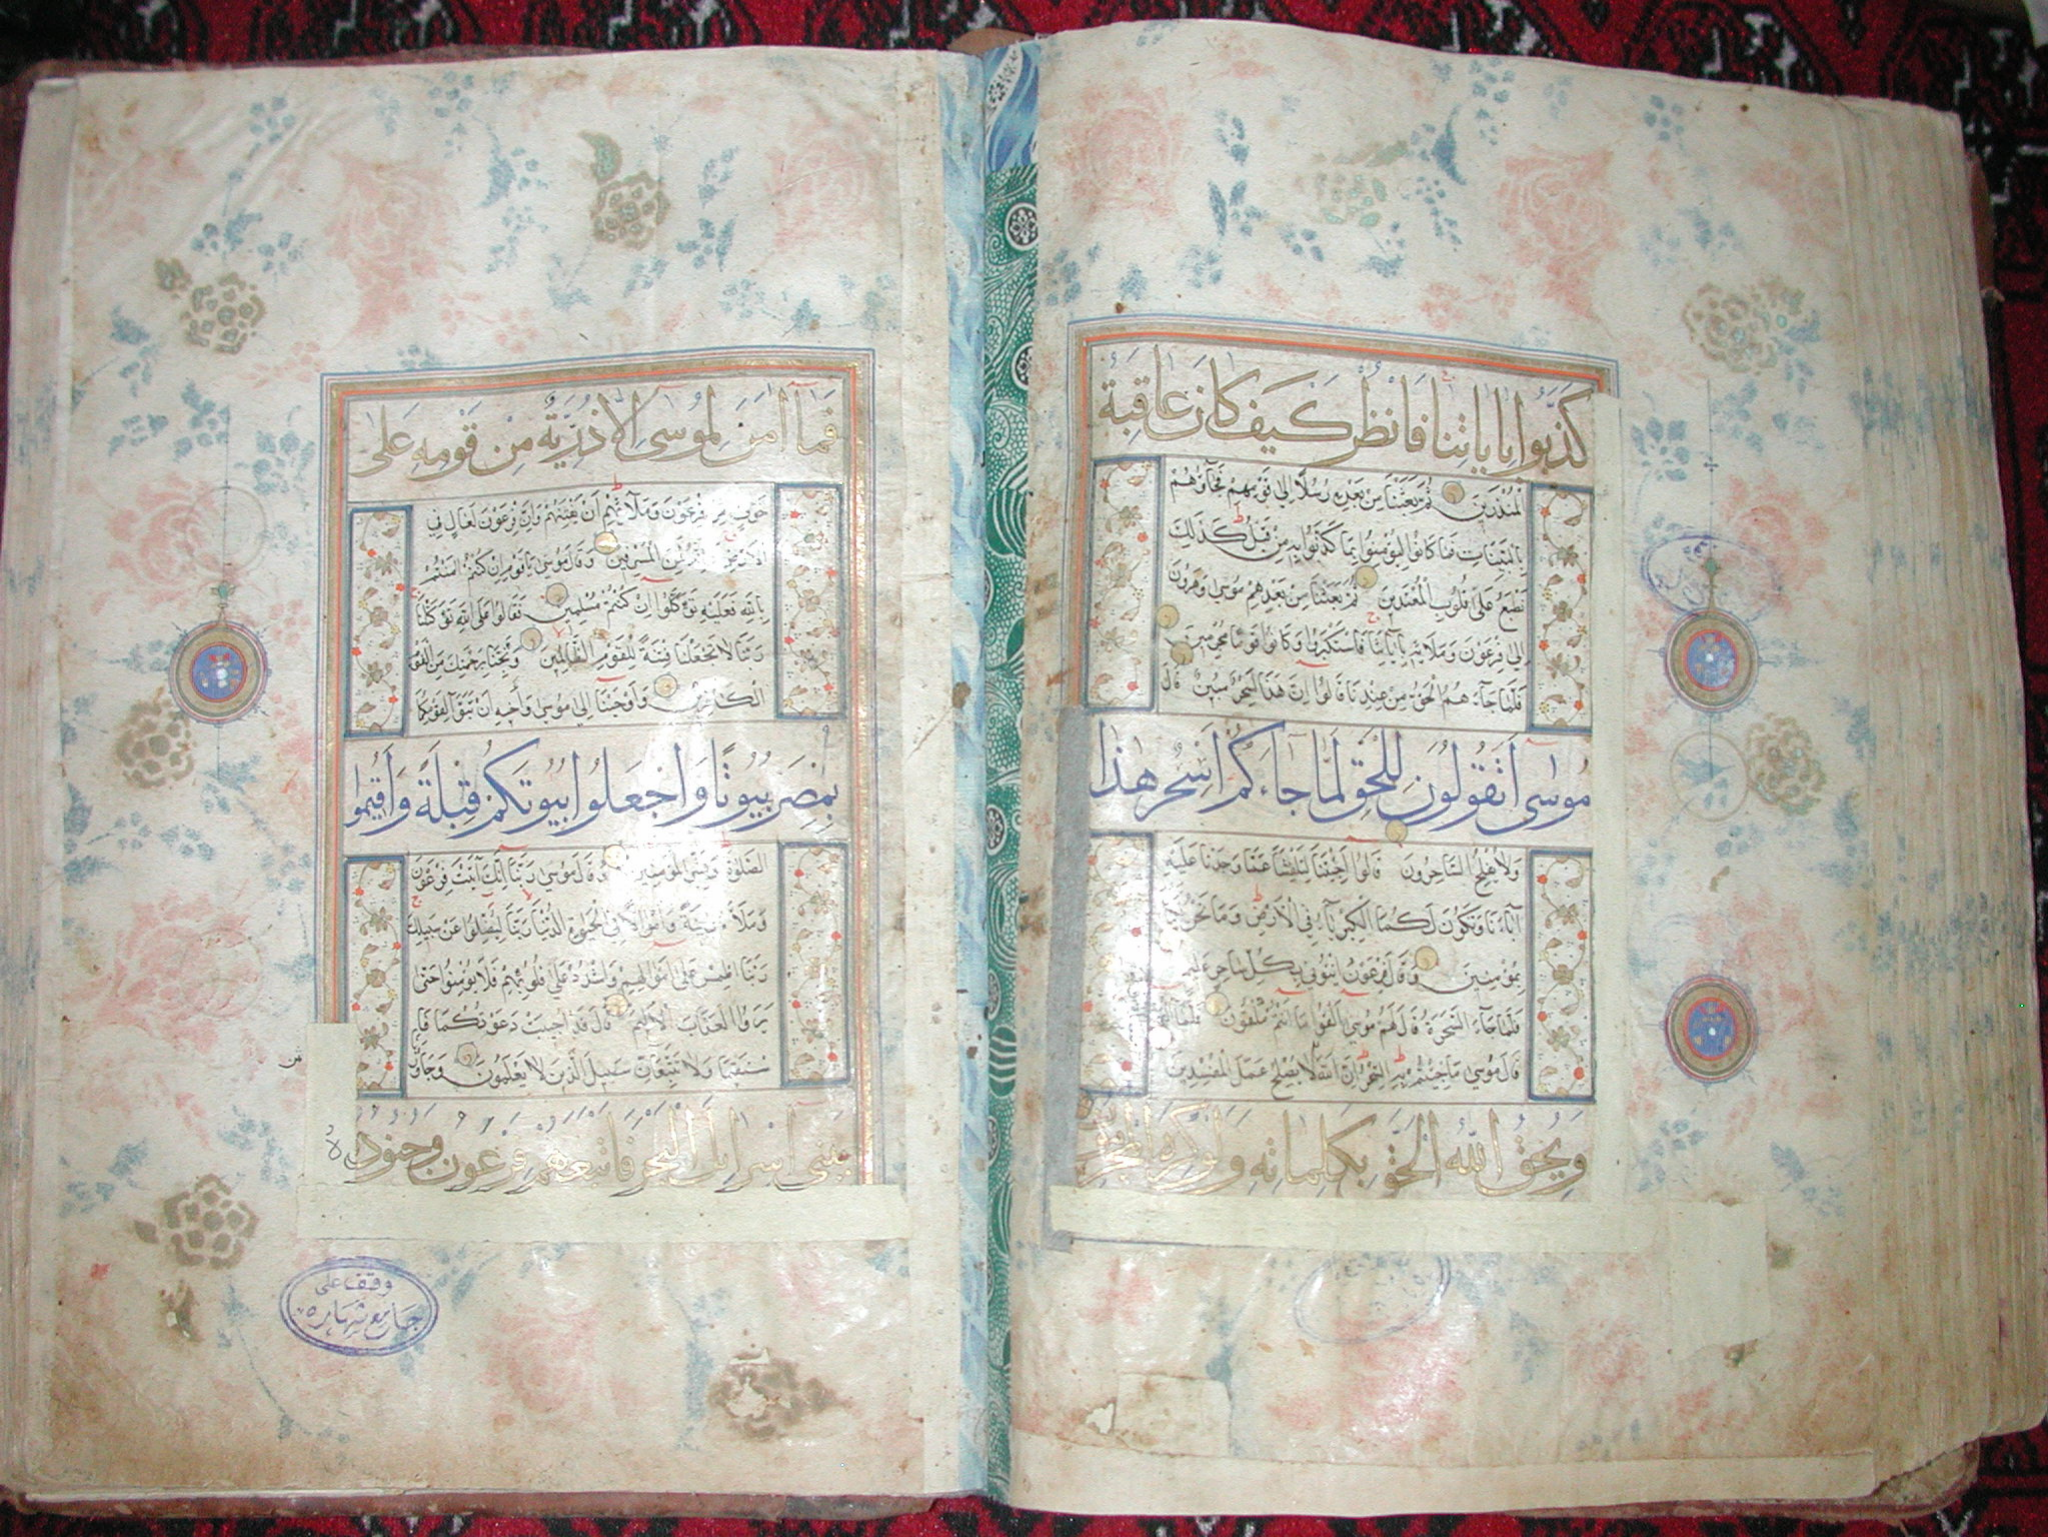 كذبوا باياتنا فانظر كيف كان عاقبة
المنذرين ثم بعثنا من بعده رسلا الى قومهم فجاؤهم
بالبينات فما كانوا ليؤمنوا بما كذبوا به من قبل كذلك
نطبع على قلوب المعتدين ثم بعثنا من بعدهم موسى وهرون
الى فرعون وملائه باياتنا فاستكبروا وكانوا قوما مجرمين
فلما جاءهم الحق من عندنا قالوا ان هذا لسحر مبين قال
موسى اتقولون للحق لما جاءكم اسحر هذا
ولا يفلح الساحرون قالوا اجئتنا لتلفتنا عما وجدنا عليه
اباءنا وتكون لكما الكبرياء في الارض وما نحن لكما
بمؤمنين وقال فرعون ائتوني بكل ساحر عليم
فلما جاء السحرة قال لهم موسى القوا ما انتم ملقون فلما القوا
قال موسى ما جئتم به السحر ان الله لا يصلح عمل المفسدين
ويحق الله الحق بكلماته ولو كره المجرمون
فما امن لموسى الا ذرية من قومه على
خوف من فرعون وملائهم ان يفتنهم وان فرعون لعال في
الارض وانه لمن المسرفين وقال موسى يا قوم ان كنتم امنتم
بالله فعليه توكلوا ان كنتم مسلمين فقالوا على الله توكلنا
ربنا لا تجعلنا فتنة للقوم الظالمين ونجنا برحمتك من القوم
الكافرين واوحينا الى موسى واخيه ان تبوا لقومكما
بمصر بيوتا واجعلوا بيوتكم قبلة واقيموا
الصلوة وبشر المؤمنين وقال موسى ربنا انك اتيت فرعون
وملاه زينة واموالا في الحيوة الدنيا ربنا ليضلوا عن سبيلك
ربنا اطمس على اموالهم واشدد على قلوبهم فلا يؤمنوا حتى
يروا العذاب الاليم قال قد اجيبت دعوتكما فا
ستقيما ولا تتبعان سبيل الذين لا يعلمون وجاوزنا
ببني اسرائيل البحر فاتبعهم فرعون وجنوده
وقف على
جامع شهاره